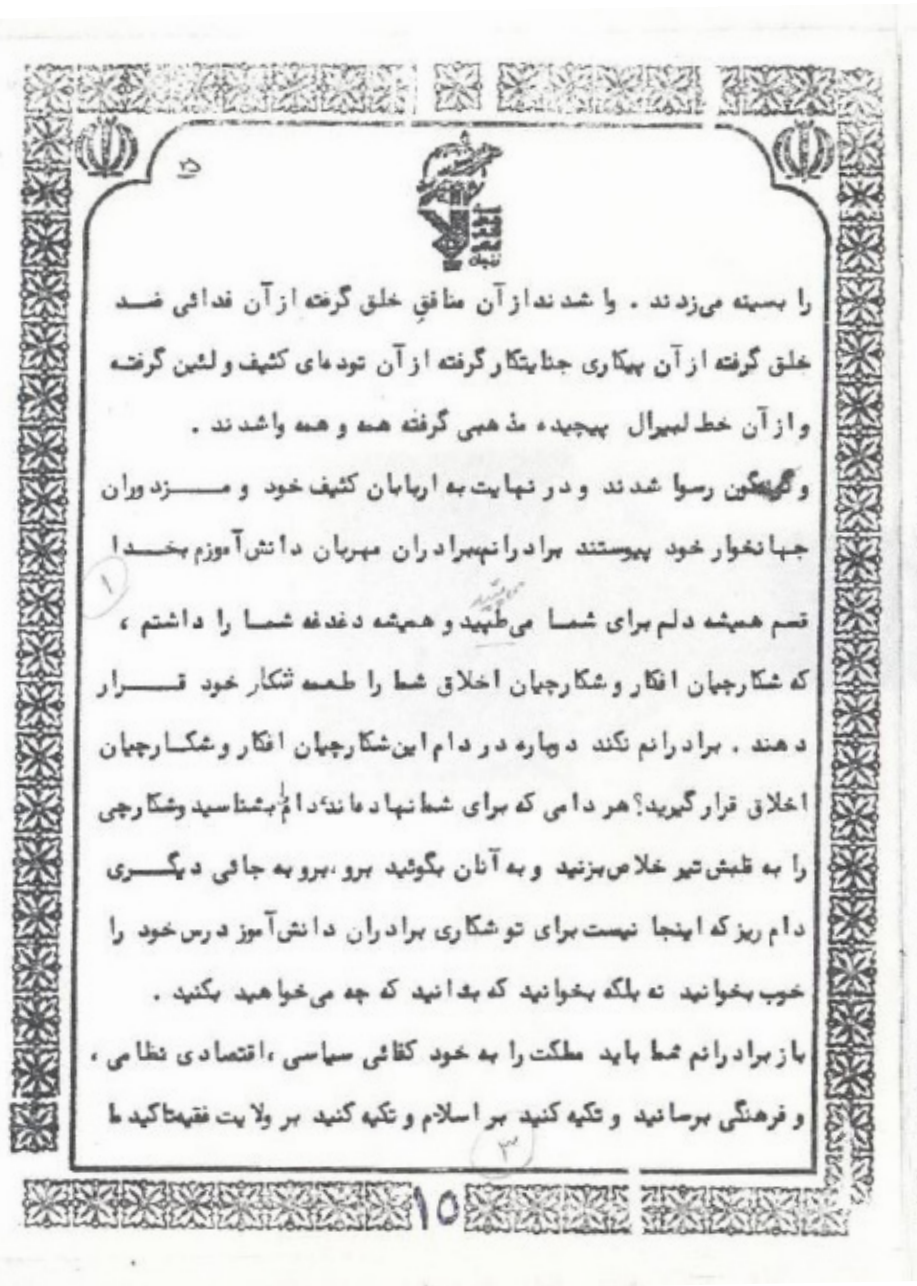 ۲۵
را بسینه می‌زدند . وا شدند از آن منافقِ خلق گرفته از آن فدائی ضد
خلق گرفته از آن پیکاری جنایتکار گرفته از آن توده‌ای کثیف و لئین گرفته
و از آن خط لیبرال پیچیده مذهبی گرفته همه و همه واشدند .
رسوا شدند و در نهایت به اربابان کثیف خود و مزدوران
جهانخوار خود پیوستند برادرانم،برادران مهربان دانش‌آموزم بخدا
۱
قسم همیشه دلم برای شما می‌طپید و همیشه دغدغه شما را داشتم ،
که شکارچیان افکار و شکارچیان اخلاق شما را طعمه شکار خود قرار
دهند . برادرانم نکند دوباره در دام این شکارچیان افکار و شکارچیان
اخلاق قرار گیرید؟ هر دامی که برای شما نهاده‌اند دام را بشناسید وشکارچی
را به قلبش تیر خلاص بزنید و به آنان بگوئید برو ،برو به جائی دیگری
دام ریز که اینجا نیست برای تو شکاری برادران دانش‌آموز درس خود را
خوب بخوانید نه بلکه بخوانید که بدانید که چه می‌خواهید بکنید .
باز برادرانم شما باید مملکت را به خود کفائی سیاسی ،اقتصادی نظامی ،
و فرهنگی برسانید و تکیه کنید بر اسلام و تکیه کنید بر ولایت فقیه تاکید ما
۳
۱۵